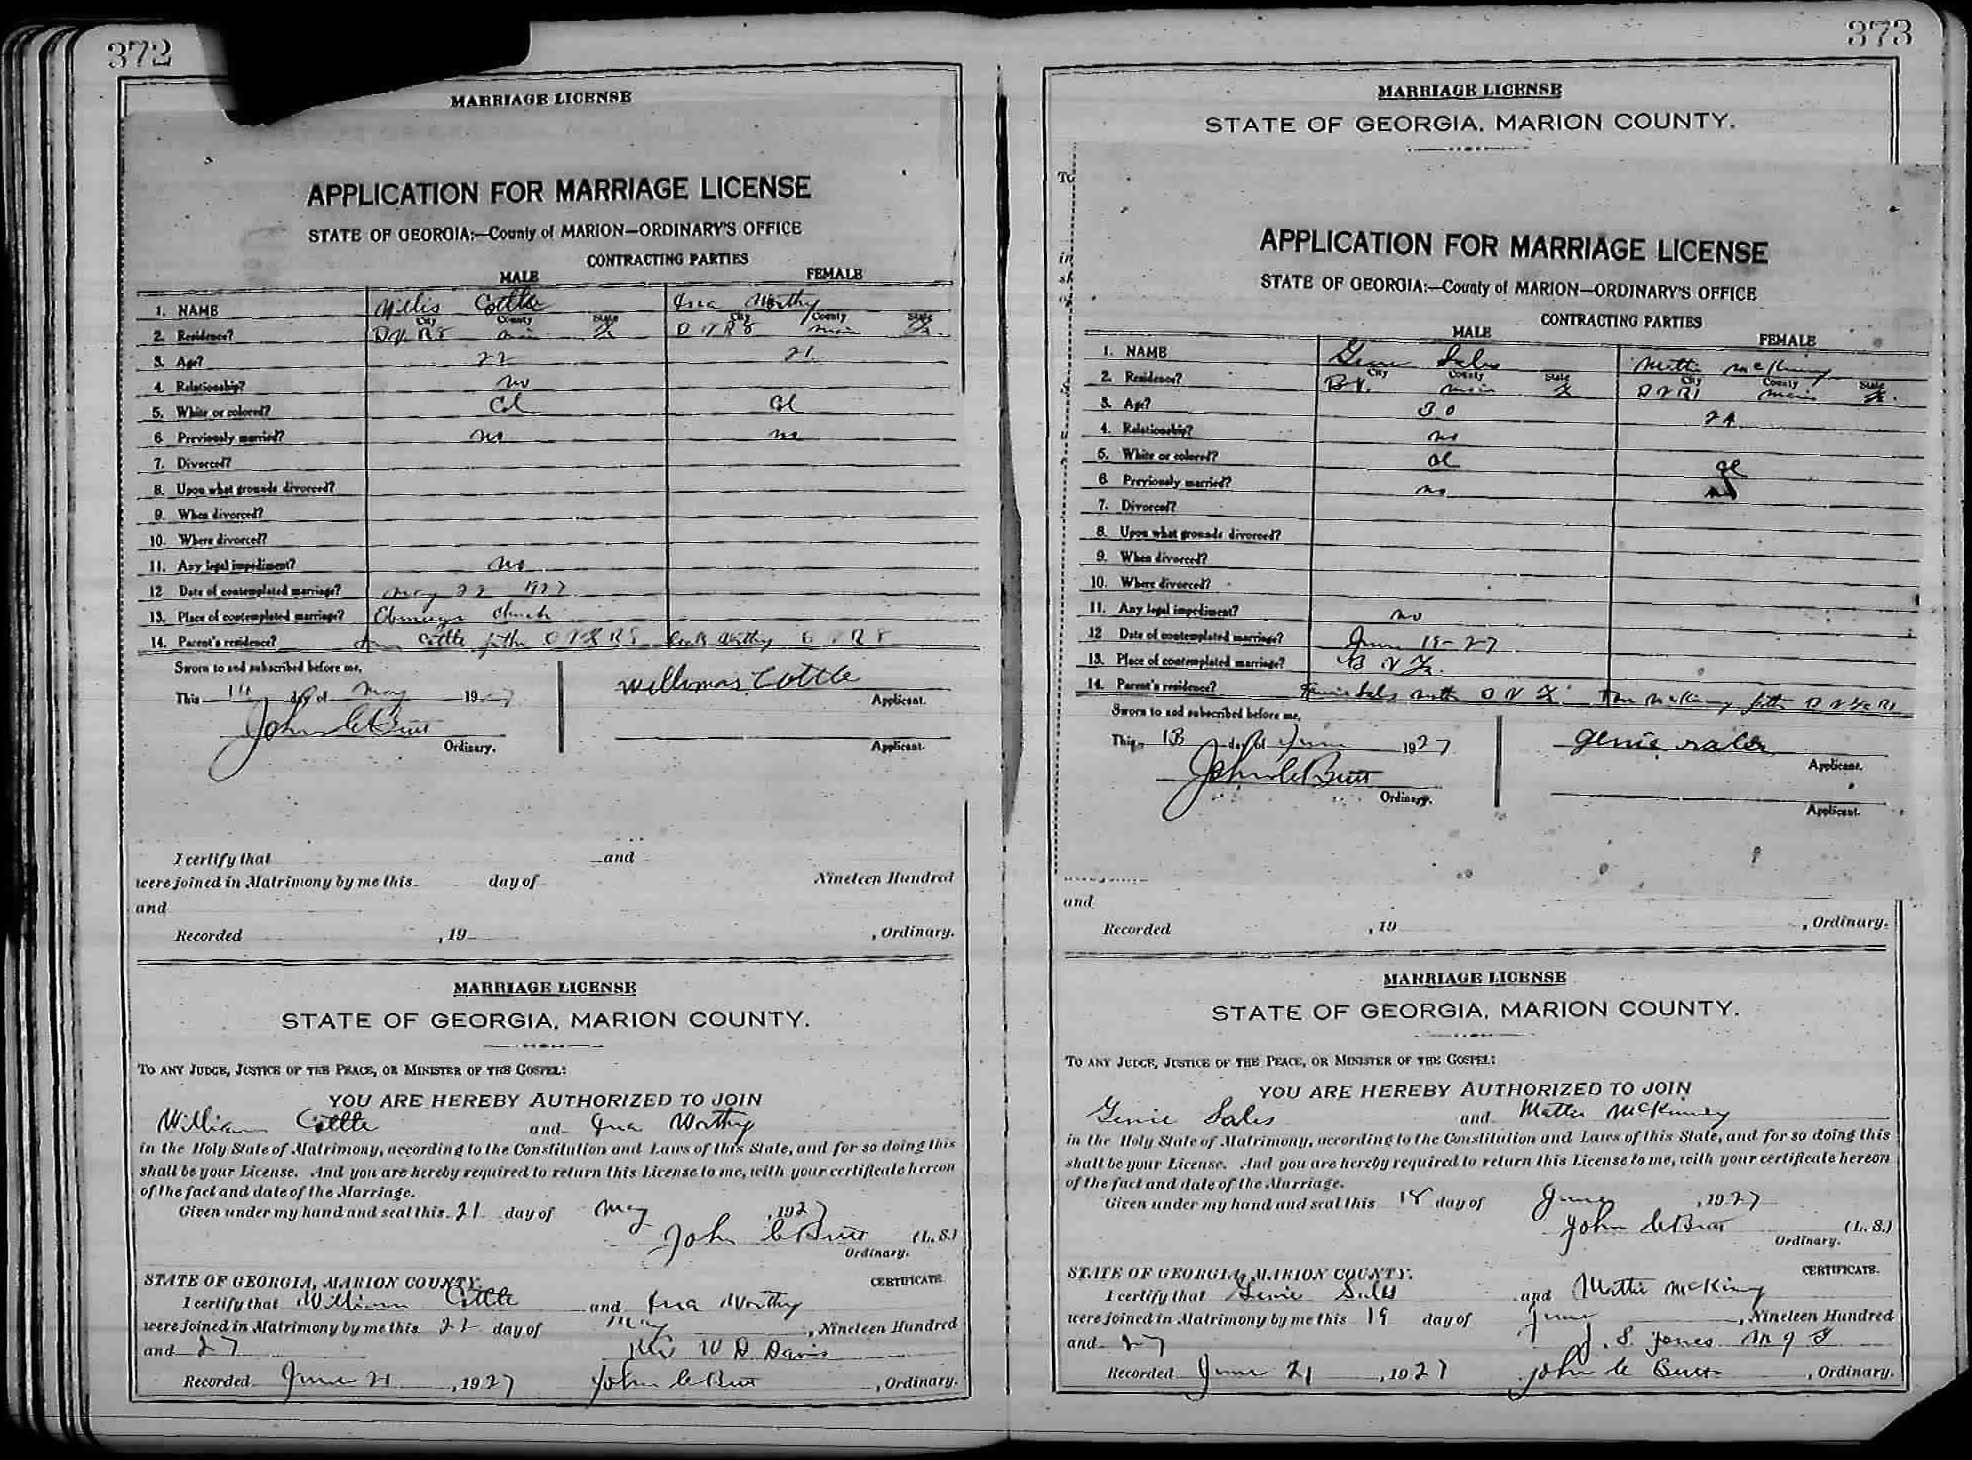 372
MARRIAGE LICENSE
APPLICATION FOR MARRIAGE LICENSE
STATE OF GEORGIA:—County of MARION—ORDINARY'S OFFICE
CONTRACTING PARTIES
MALE FEMALE
1. NAME Willis Cottle Ina Worthy
City County State City County State
2. Residence?
3. Age? 22 21
4. Relationship? no
5. White or colored? Col Col
6 Previously married? no no
7. Divorced?
8. Upon what grounds divorced?
9. When divorced?
10. Where divorced?
11. Any legal impediment? no
12 Date of contemplated marriage? May 22 1927
13. Place of contemplated marriage? Church
14. Parent's residence? Cottle father Worthy
Sworn to and subscribed before me,
This day of May 1927
Willimas Cottle
Applicant.
John C Butt
Ordinary.
Applicant.
I certify that and
were joined in Matrimony by me this day of Nineteen Hundred
and
Recorded , 19 , Ordinary.
MARRIAGE LICENSE
STATE OF GEORGIA, MARION COUNTY.
TO ANY JUDGE, JUSTICE OF THE PEACE, OR MINISTER OF THE GOSPEL:
YOU ARE HEREBY AUTHORIZED TO JOIN
William Cottle and Ina Worthy
in the Holy State of Matrimony, according to the Constitution and Laws of this State, and for so doing this
shall be your License. And you are hereby required to return this License to me, with your certificate hereon
of the fact and date of the Marriage.
Given under my hand and seal this 21 day of May , 1927
John C Butt (L. S.)
Ordinary.
STATE OF GEORGIA, MARION COUNTY. CERTIFICATE.
I certify that William Cottle and Ina Worthy
were joined in Matrimony by me this 22 day of May , Nineteen Hundred
and 27 Rev W D Davis
Recorded June 21 , 1927 John C Butt , Ordinary.
373
MARRIAGE LICENSE
STATE OF GEORGIA, MARION COUNTY.
To
in
sh
of
APPLICATION FOR MARRIAGE LICENSE
STATE OF GEORGIA:—County of MARION—ORDINARY'S OFFICE
CONTRACTING PARTIES
MALE FEMALE
1. NAME Genie Sales Mattie McKinney
City County State City County State
2. Residence?
3. Age? 30 24
4. Relationship? no
5. White or colored? Col Col
6 Previously married? no no
7. Divorced?
8. Upon what grounds divorced?
9. When divorced?
10. Where divorced?
11. Any legal impediment? no
12 Date of contemplated marriage? June 19-27
13. Place of contemplated marriage? B V Ga
14. Parent's residence? Sales mother McKinney father
Sworn to and subscribed before me,
This 18 day of June 1927
genie sales
Applicant.
John C Butt
Ordinary.
Applicant.
and
Recorded , 19 , Ordinary.
MARRIAGE LICENSE
STATE OF GEORGIA, MARION COUNTY.
TO ANY JUDGE, JUSTICE OF THE PEACE, OR MINISTER OF THE GOSPEL:
YOU ARE HEREBY AUTHORIZED TO JOIN
Genie Sales and Mattie McKinney
in the Holy State of Matrimony, according to the Constitution and Laws of this State, and for so doing this
shall be your License. And you are hereby required to return this License to me, with your certificate hereon
of the fact and date of the Marriage.
Given under my hand and seal this 18 day of June , 1927
John C Butt (L. S.)
Ordinary.
STATE OF GEORGIA, MARION COUNTY. CERTIFICATE.
I certify that Genie Sales and Mattie McKinny
were joined in Matrimony by me this 19 day of June , Nineteen Hundred
and 27 J. S. Jones M G
Recorded June 21 , 1927 John C Butt , Ordinary.